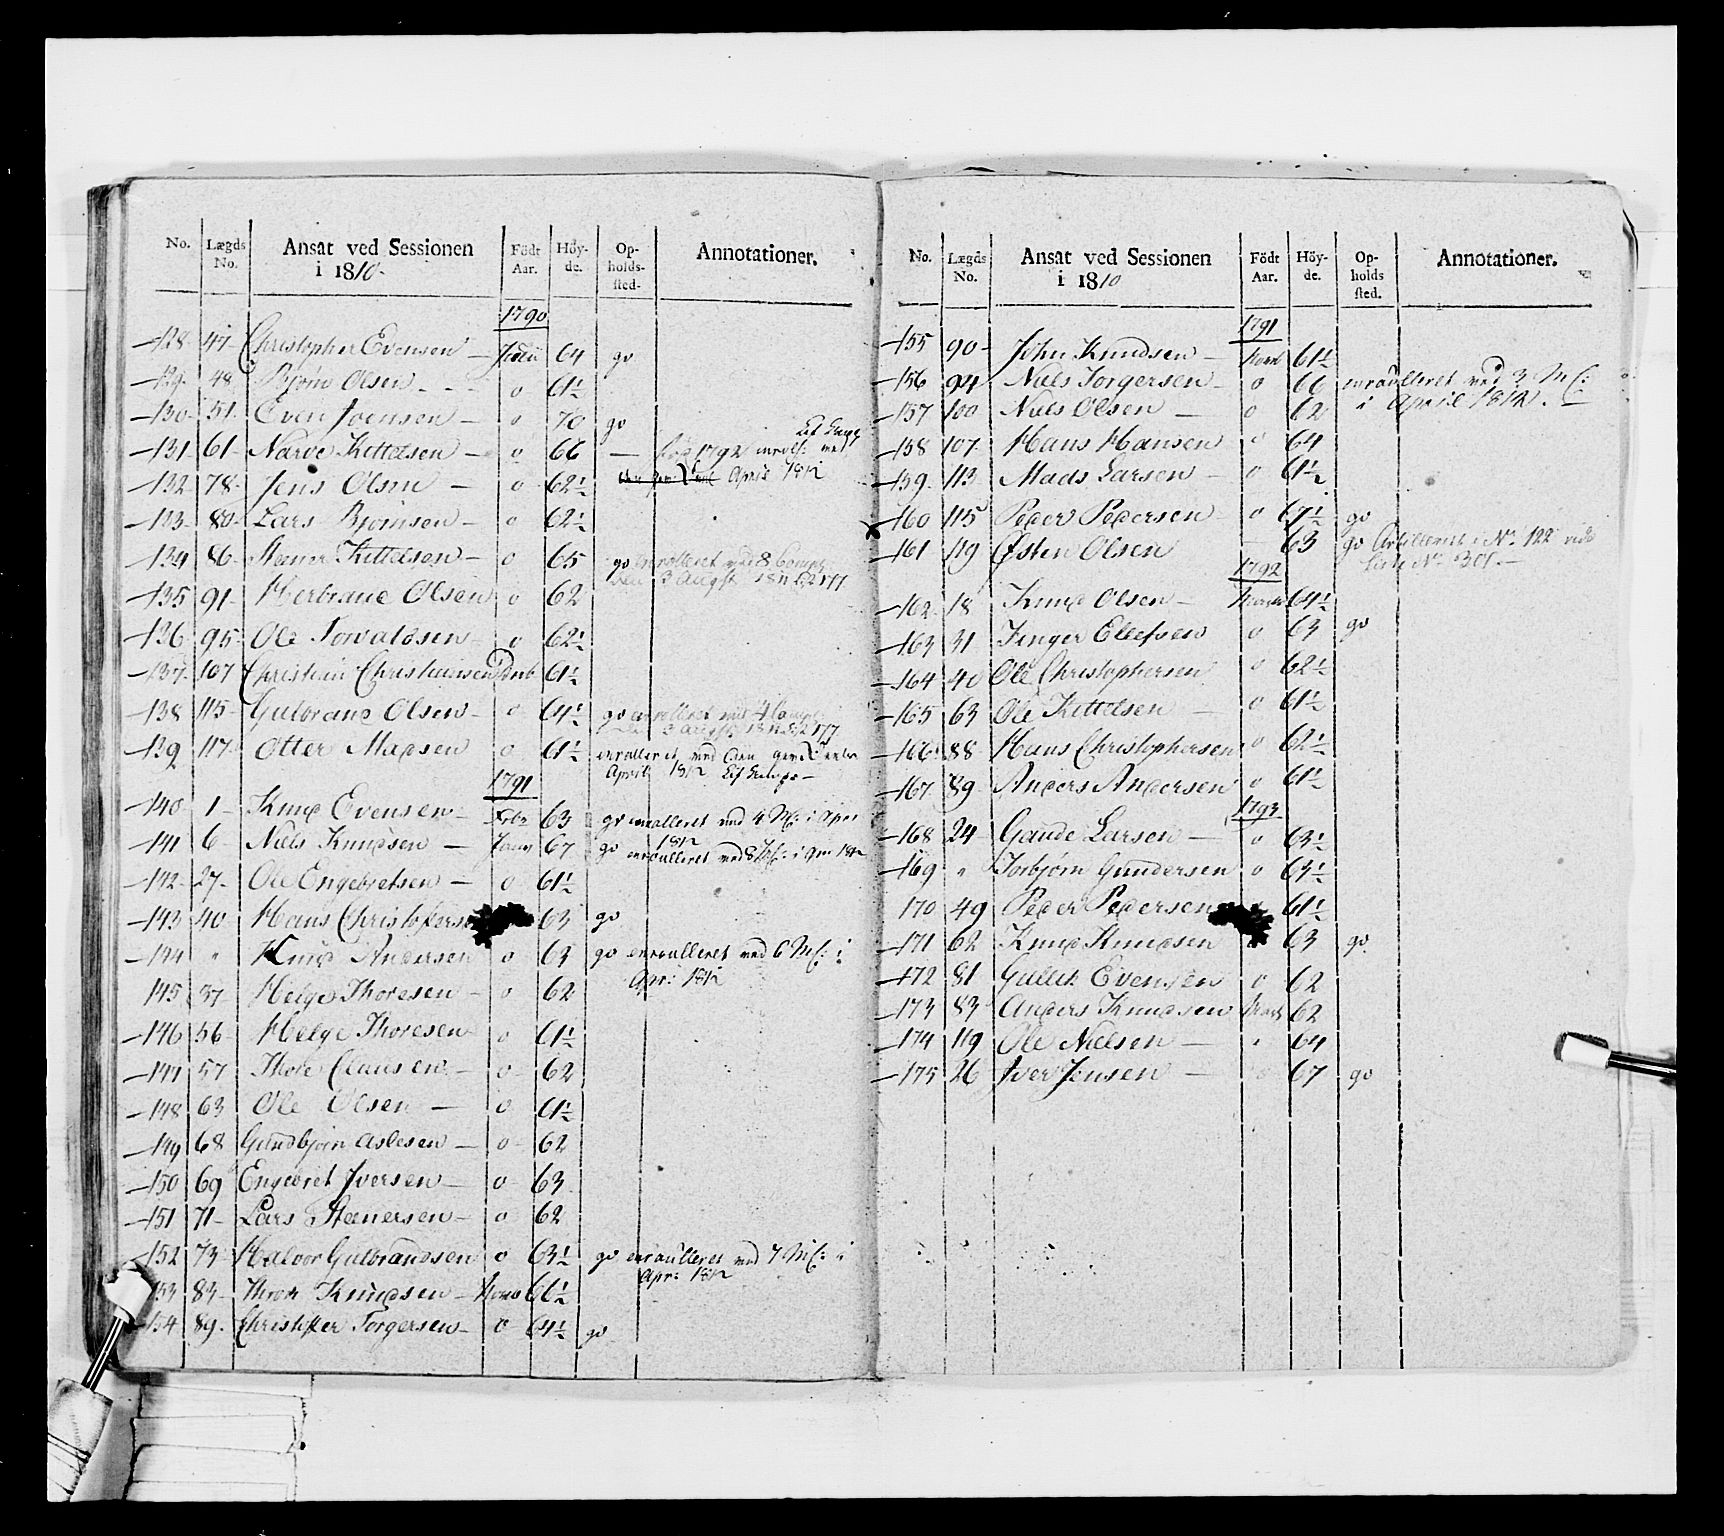 No. Lægds No. Ansat ved Sessionen i 1810. Födt Aar. Höyde. Opholdssted. Annotationer.
1790
128 47 Christopher Evensen 64 go
129 48 Bjørn Olsen o 61½
130 51 Even Joensen o 70 go
Lif Comp
131 61 Narve Kittelsen o 66 — 1792 med
132 78 Jens Olsen o 62½ April 1812
133 80 Lars Bjørnsen o 62½
134 86 Steener Kittelsen o 65 go enroulleret ved 8 Comp
3 Augst 1811
135 91 Herbrand Olsen o 62
136 95 Ole Torvaldsen o 62½
137 107 Christian Christiansen 61½
138 115 Gulbrand Olsen o 64½ go enroulleret ved 4 Comp
3 Augst
139 117 Otter Madsen o 61½ enroulleret ved den
April 1812 Lif Comp
1791
140 1 Knud Evensen Febr 63 go enroulleret ved 4 M: i Apr
1812
141 6 Niels Knudsen 67 go enroulleret ved 8 i Apr 1812
142 27 Ole Engebretsen o 61½
143 40 Hans Christophersen 63 go
144 " Knud Andersen o 63 go enroulleret ved 6 M: i
Apr: 1812
145 37 Helge Thoresen o 62
146 56 Helge Thoresen o 61½
147 57 Thore Clausen o 62
148 63 Ole Olsen o 61½
149 68 Gundbjørn Aslesen o 62
150 69 Engebret Iversen o 63
151 71 Lars Steenersen o 62
152 73 Halvor Gulbrandsen o 63½ go enroulleret ved 7 M: i
Apr: 1812
153 83 Knudsen 66½
154 89 Christopher Torgersen o 64½ go
No. Lægds No. Ansat ved Sessionen i 1810 Födt Aar. Höyde. Opholds sted. Annotationer.
1791
155 90 John Knudsen 61½
156 94 Niels Torgersen o 66 enroulleret ved 3 M:
157 100 Niels Olsen o 62 i April 1812.
158 107 Hans Hansen o 64
159 113 Mads Larsen o 61½
160 115 Peder Pedersen o 67½ go
161 119 Østen Olsen — 63 go Artilleriet No 122 vide
Liste No 301.
1792
162 18 Knud Olsen 64½
163 31 Ellefsen o 63 go
164 40 Ole Christophersen o 62½
165 63 Ole Kittelsen o 61½
166 88 Hans Christophersen o 62½
167 89 Anders Andersen o 61½
1793
168 24 Gaude Larsen o 63½
169 " Torbjørn Gundersen o 63½
170 49 Peder Pedersen 61½
171 62 Knud Knudsen 63 go
172 81 Gullik Evensen o 62
173 83 Anders Knudsen 62
174 119 Ole Nielsen 64
175 26 Iver Jensen o 67 go